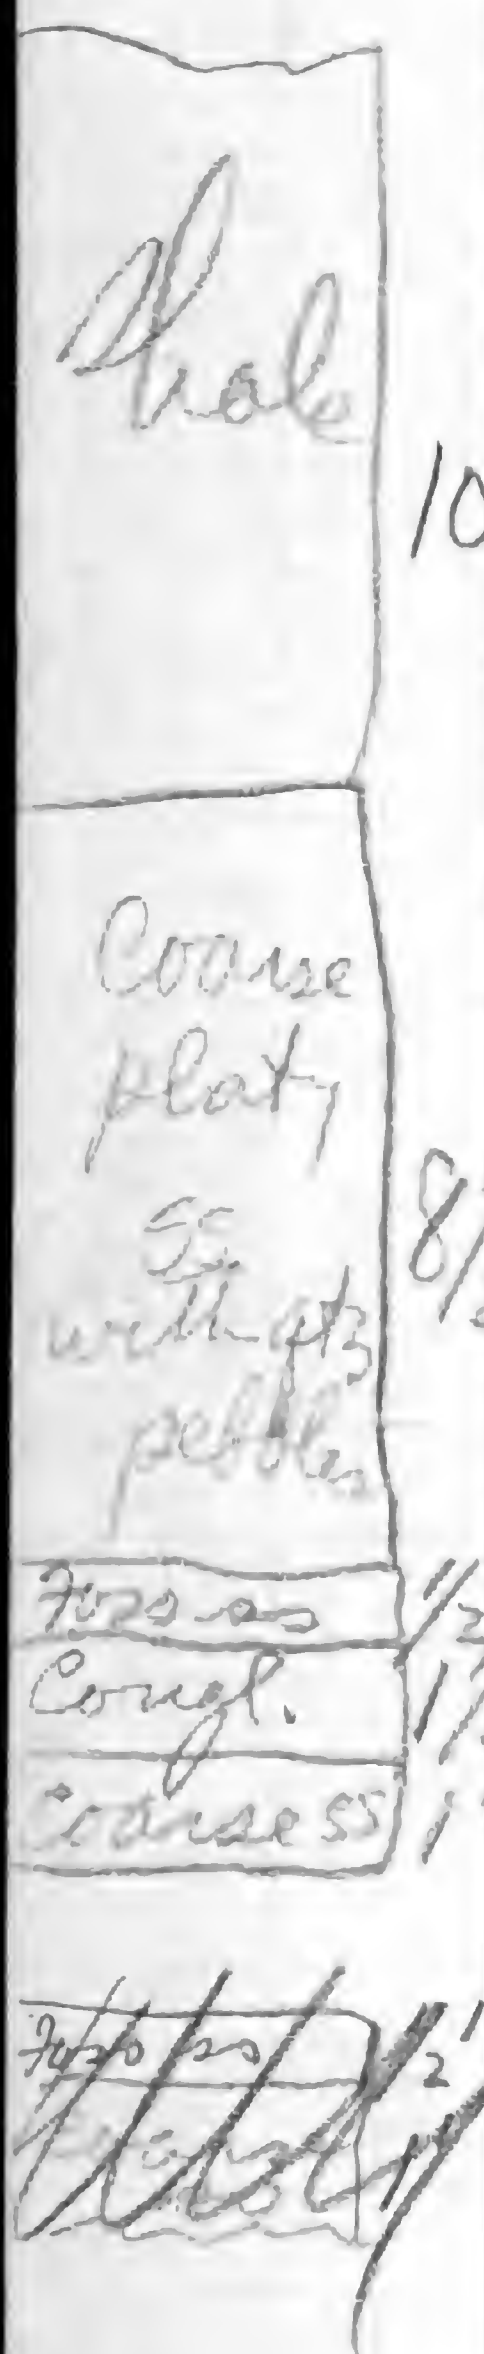 Shale
10
Coarse
platy
SS
with qtz
pebbles
8 1/2
Foss ss
1/2
Congl.
1/2
Coarse SS
1'
Foss ss
1/2'